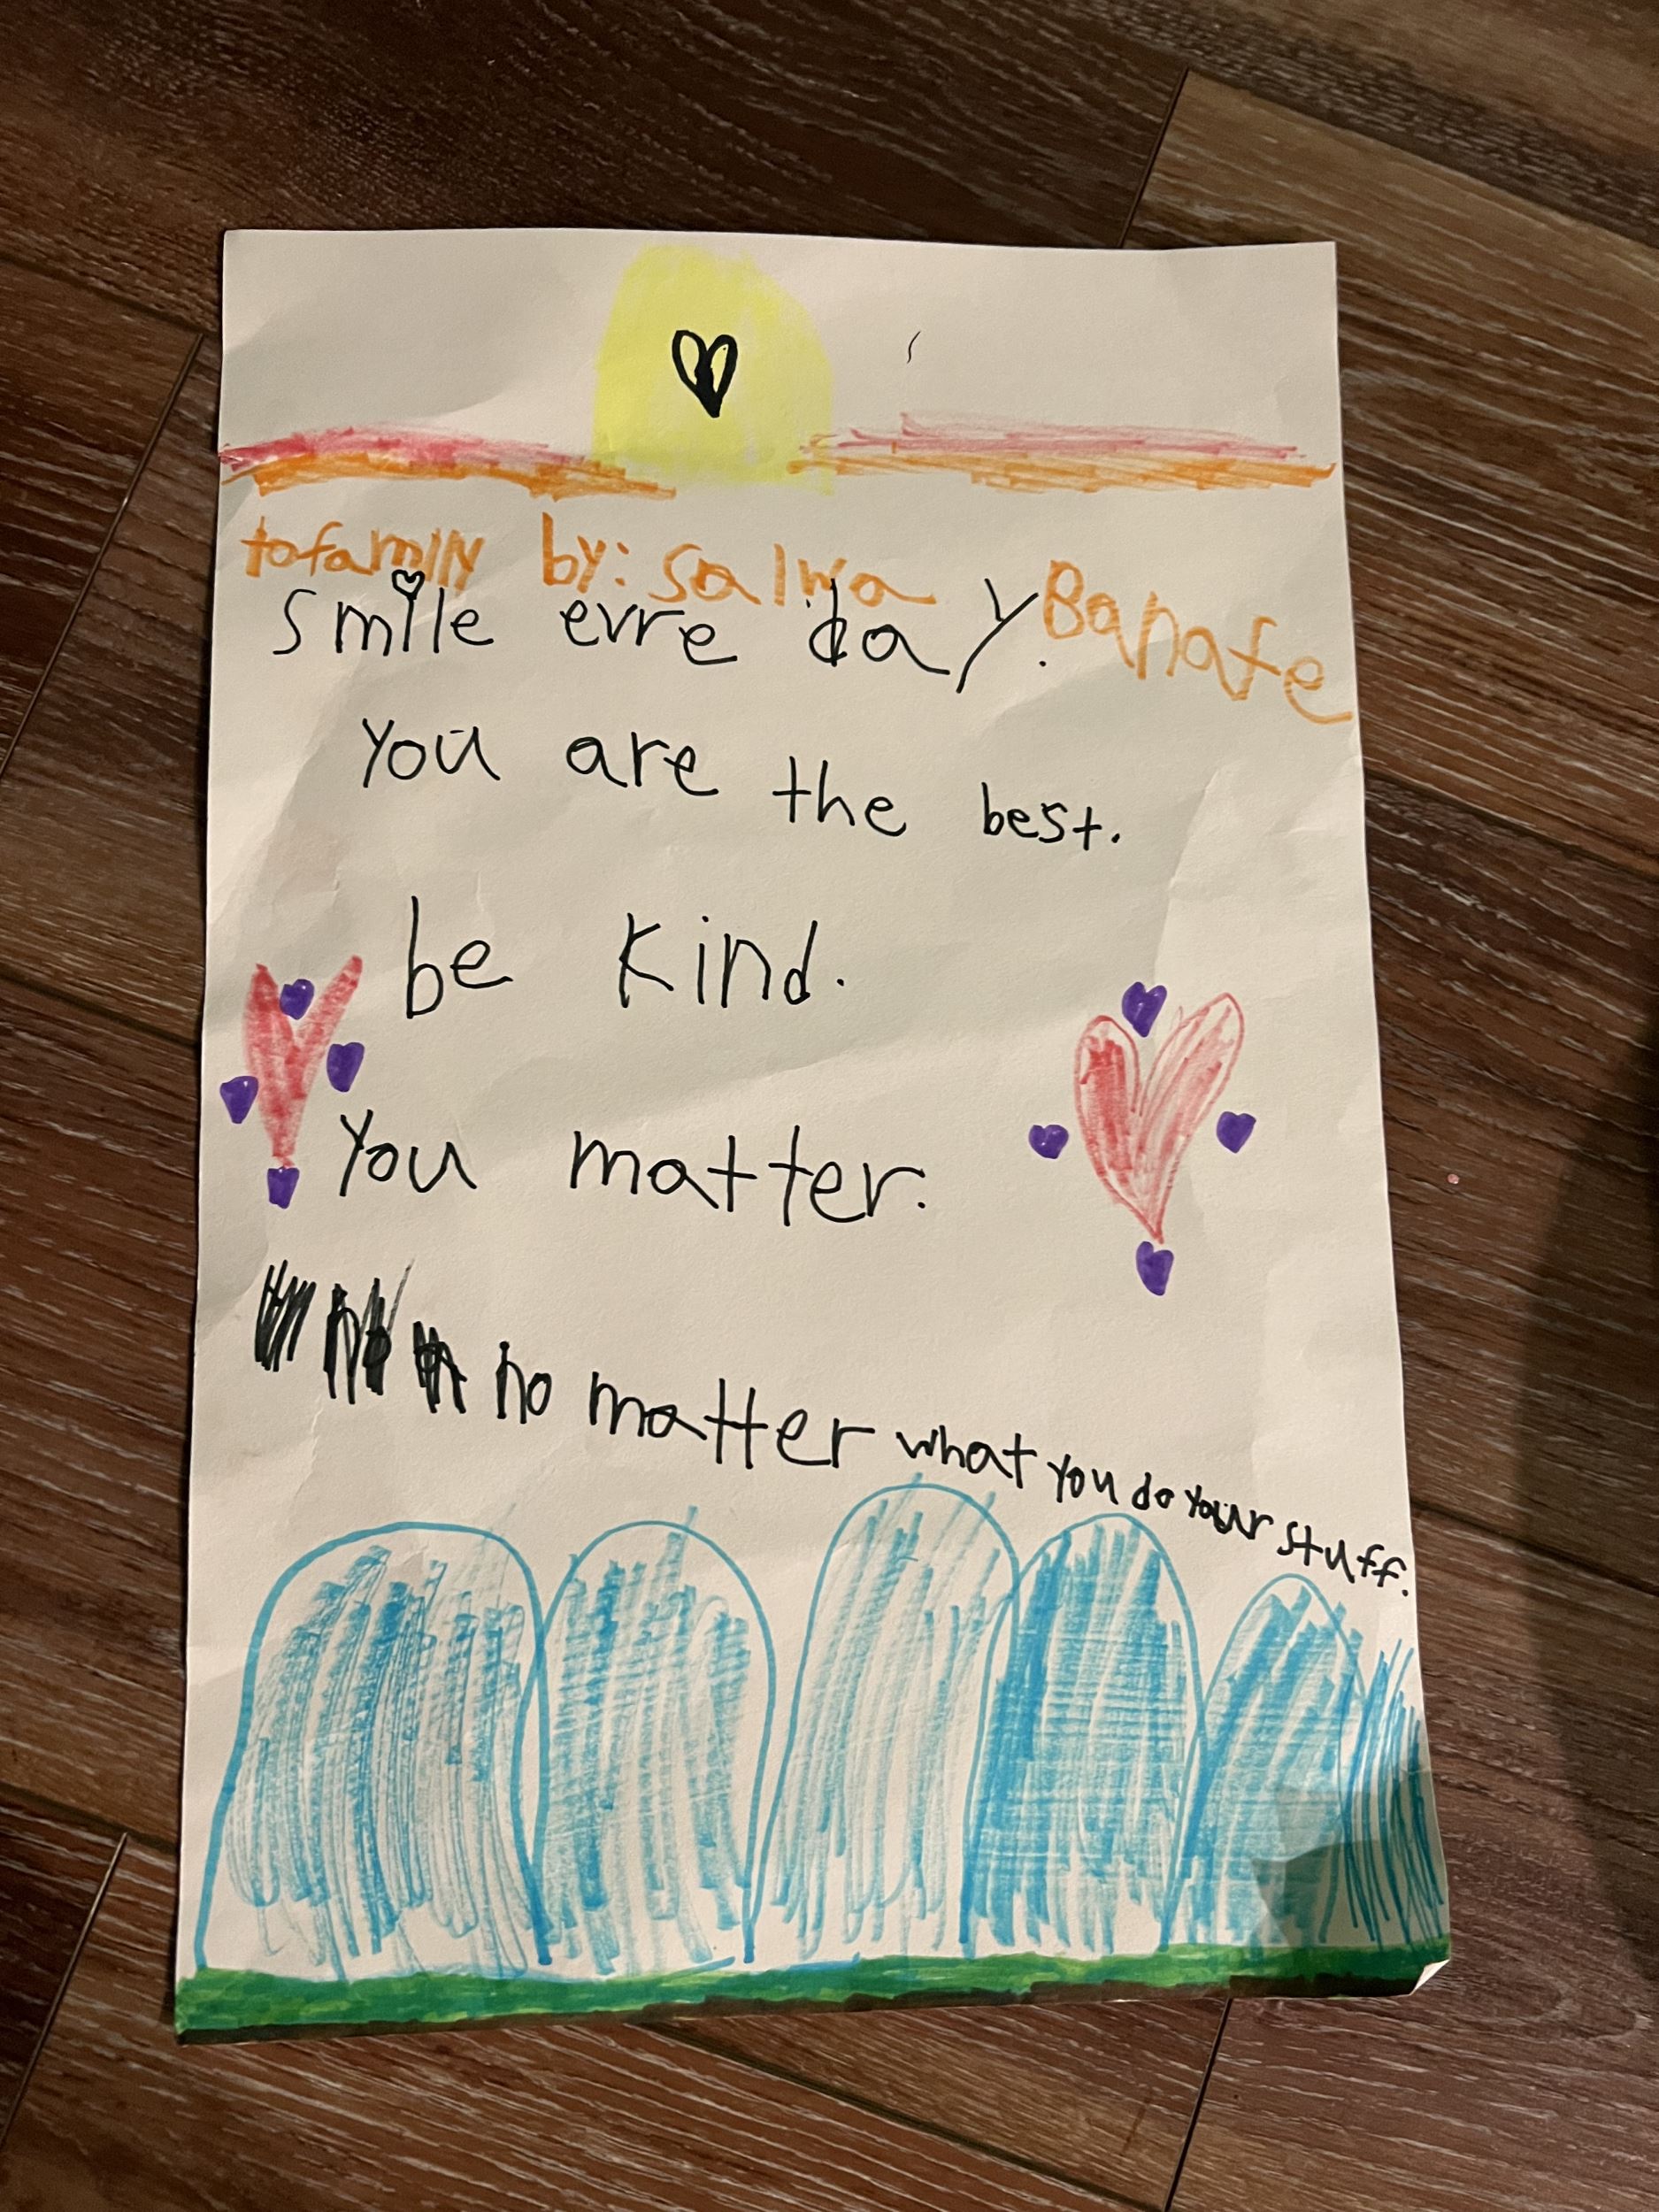 to family by: Salwa Banafe
Smile evre day.
You are the best.
be kind.
You matter.
no matter what you do your stuff.